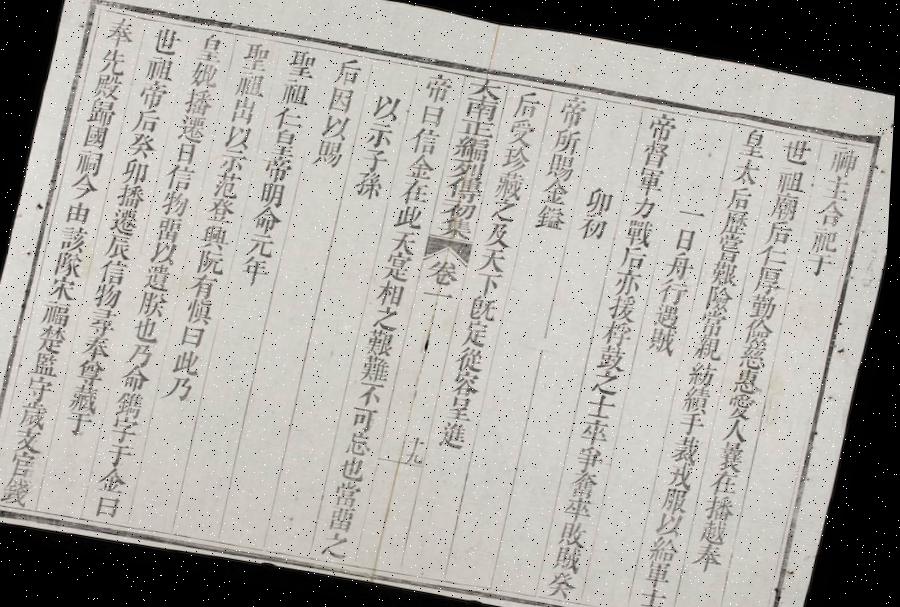 神主合祀于
世祖廟后仁厚勤儉慈惠愛人曩在播越奉
皇太后歷嘗艱險常親紡績手裁戎服以給軍士
一日舟行遇賊
帝督軍力戰后亦援桴鼓之士卒爭奮卒敗賊癸
卯初
帝所賜金鎰
后受珍藏之及天下既定從容呈進
大南正編列傳初集 卷一 十九
帝曰信金在此天寔相之艱難不可忘也當畱之
以示子孫
后因以賜
聖祖仁皇帝明命元年
聖祖出以示范登興阮有愼曰此乃
皇妣播遷日信物畱以遺朕也乃命鐫字于金曰
世祖帝后癸卯播遷辰信物尋奉尊藏于
奉先殿歸國祠今由該隊宋福楚監守歲支官錢